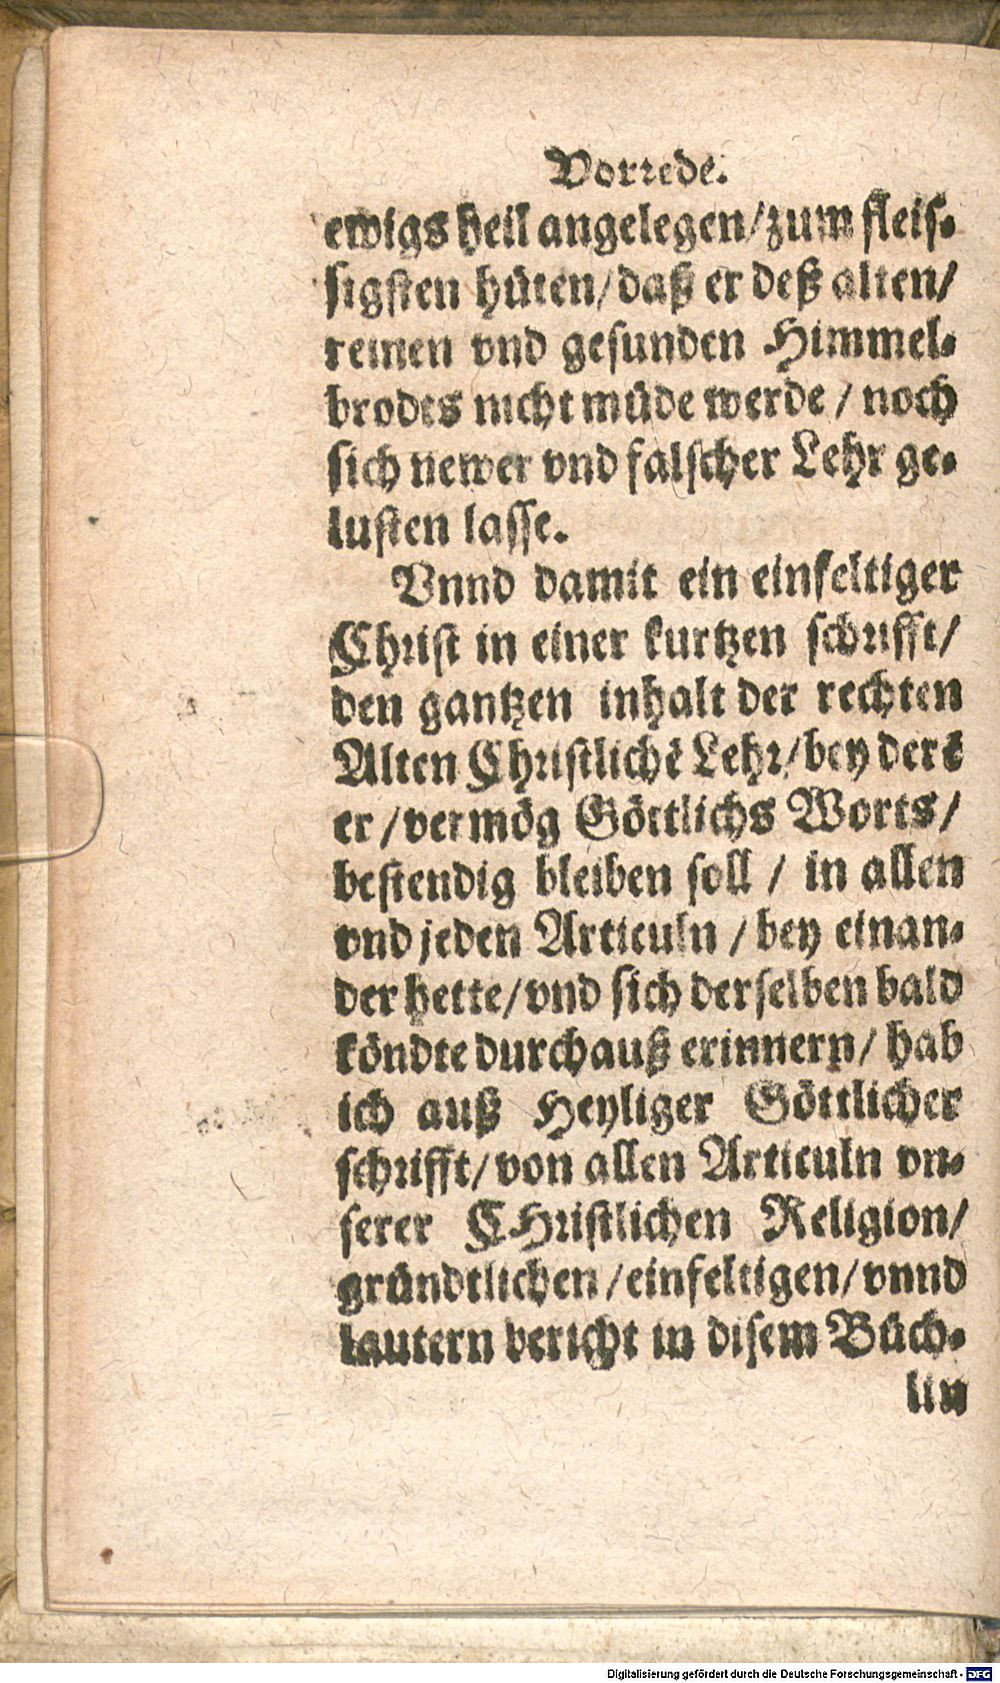 Vorrede.
ewigs heil angelegen/zum fleis-
sigsten hüten/daß er deß alten/
reinen vnd gesunden Himmel-
brodes nicht müde werde / noch
sich newer vnd falscher Lehr ge-
lusten lasse.
Vnnd damit ein einfeltiger
Christ in einer kurtzen schrifft/
den gantzen inhalt der rechten
Alten Christlichē Lehr/bey derē
er/vermög Göttlichs Worts/
bestendig bleiben soll / in allen
vnd jeden Articuln / bey einan-
der hette/vnd sich derselben bald
köndte durchauß erinnern/ hab
ich auß Heyliger Göttlicher
schrifft/von allen Articuln vn-
serer CHristlichen Religion/
gründtlichen/einfeltigen/vnnd
lautern bericht in disem Büch-
lin
Digitalisierung gefördert durch die Deutsche Forschungsgemeinschaft - DFG